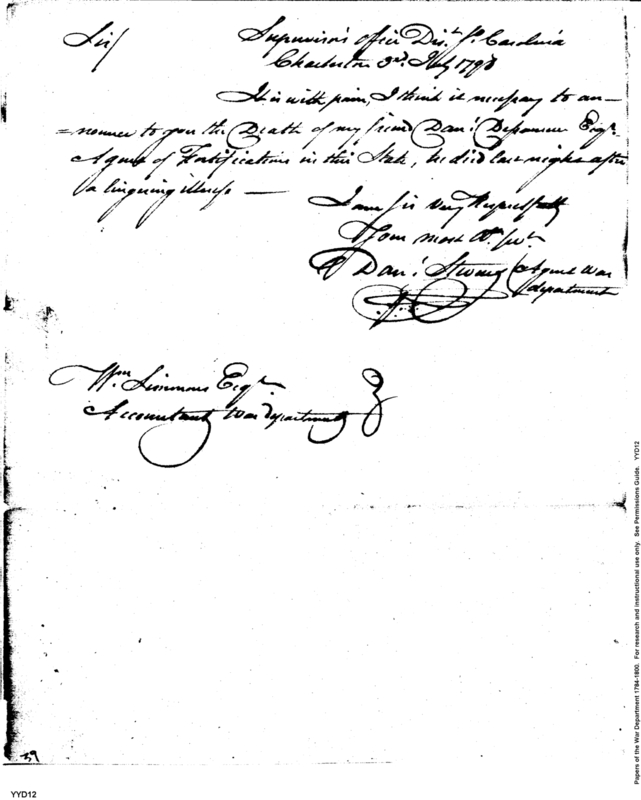 Sir/
Supervisor's office Dis.t So. Carolina
Charleston 3rd. July 1798
It is with pain, I think it necessary to an-
=nounce to you the Death of my friend Dan.l Esqr.
Agent of Fortifications in this State, he died last night after
a lingering illness —
I am Sir very Respectfully
Your most Ob. Servt.
Dan.l Stevens Agent War
department
Wm. Simmons Esqr.
Accountant War department
39
YYD12
Papers of the War Department 1784-1800. For research and instructional use only. See Permissions Guide. YYD12